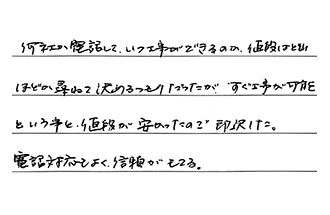 何社か電話して、いつ工事ができるのか、値段はどれ
ほどか尋ねて決めるつもりだったが、すぐ工事が可能
という事と、値段が安かったので即決した。
電話対応もよく、信頼がもてる。